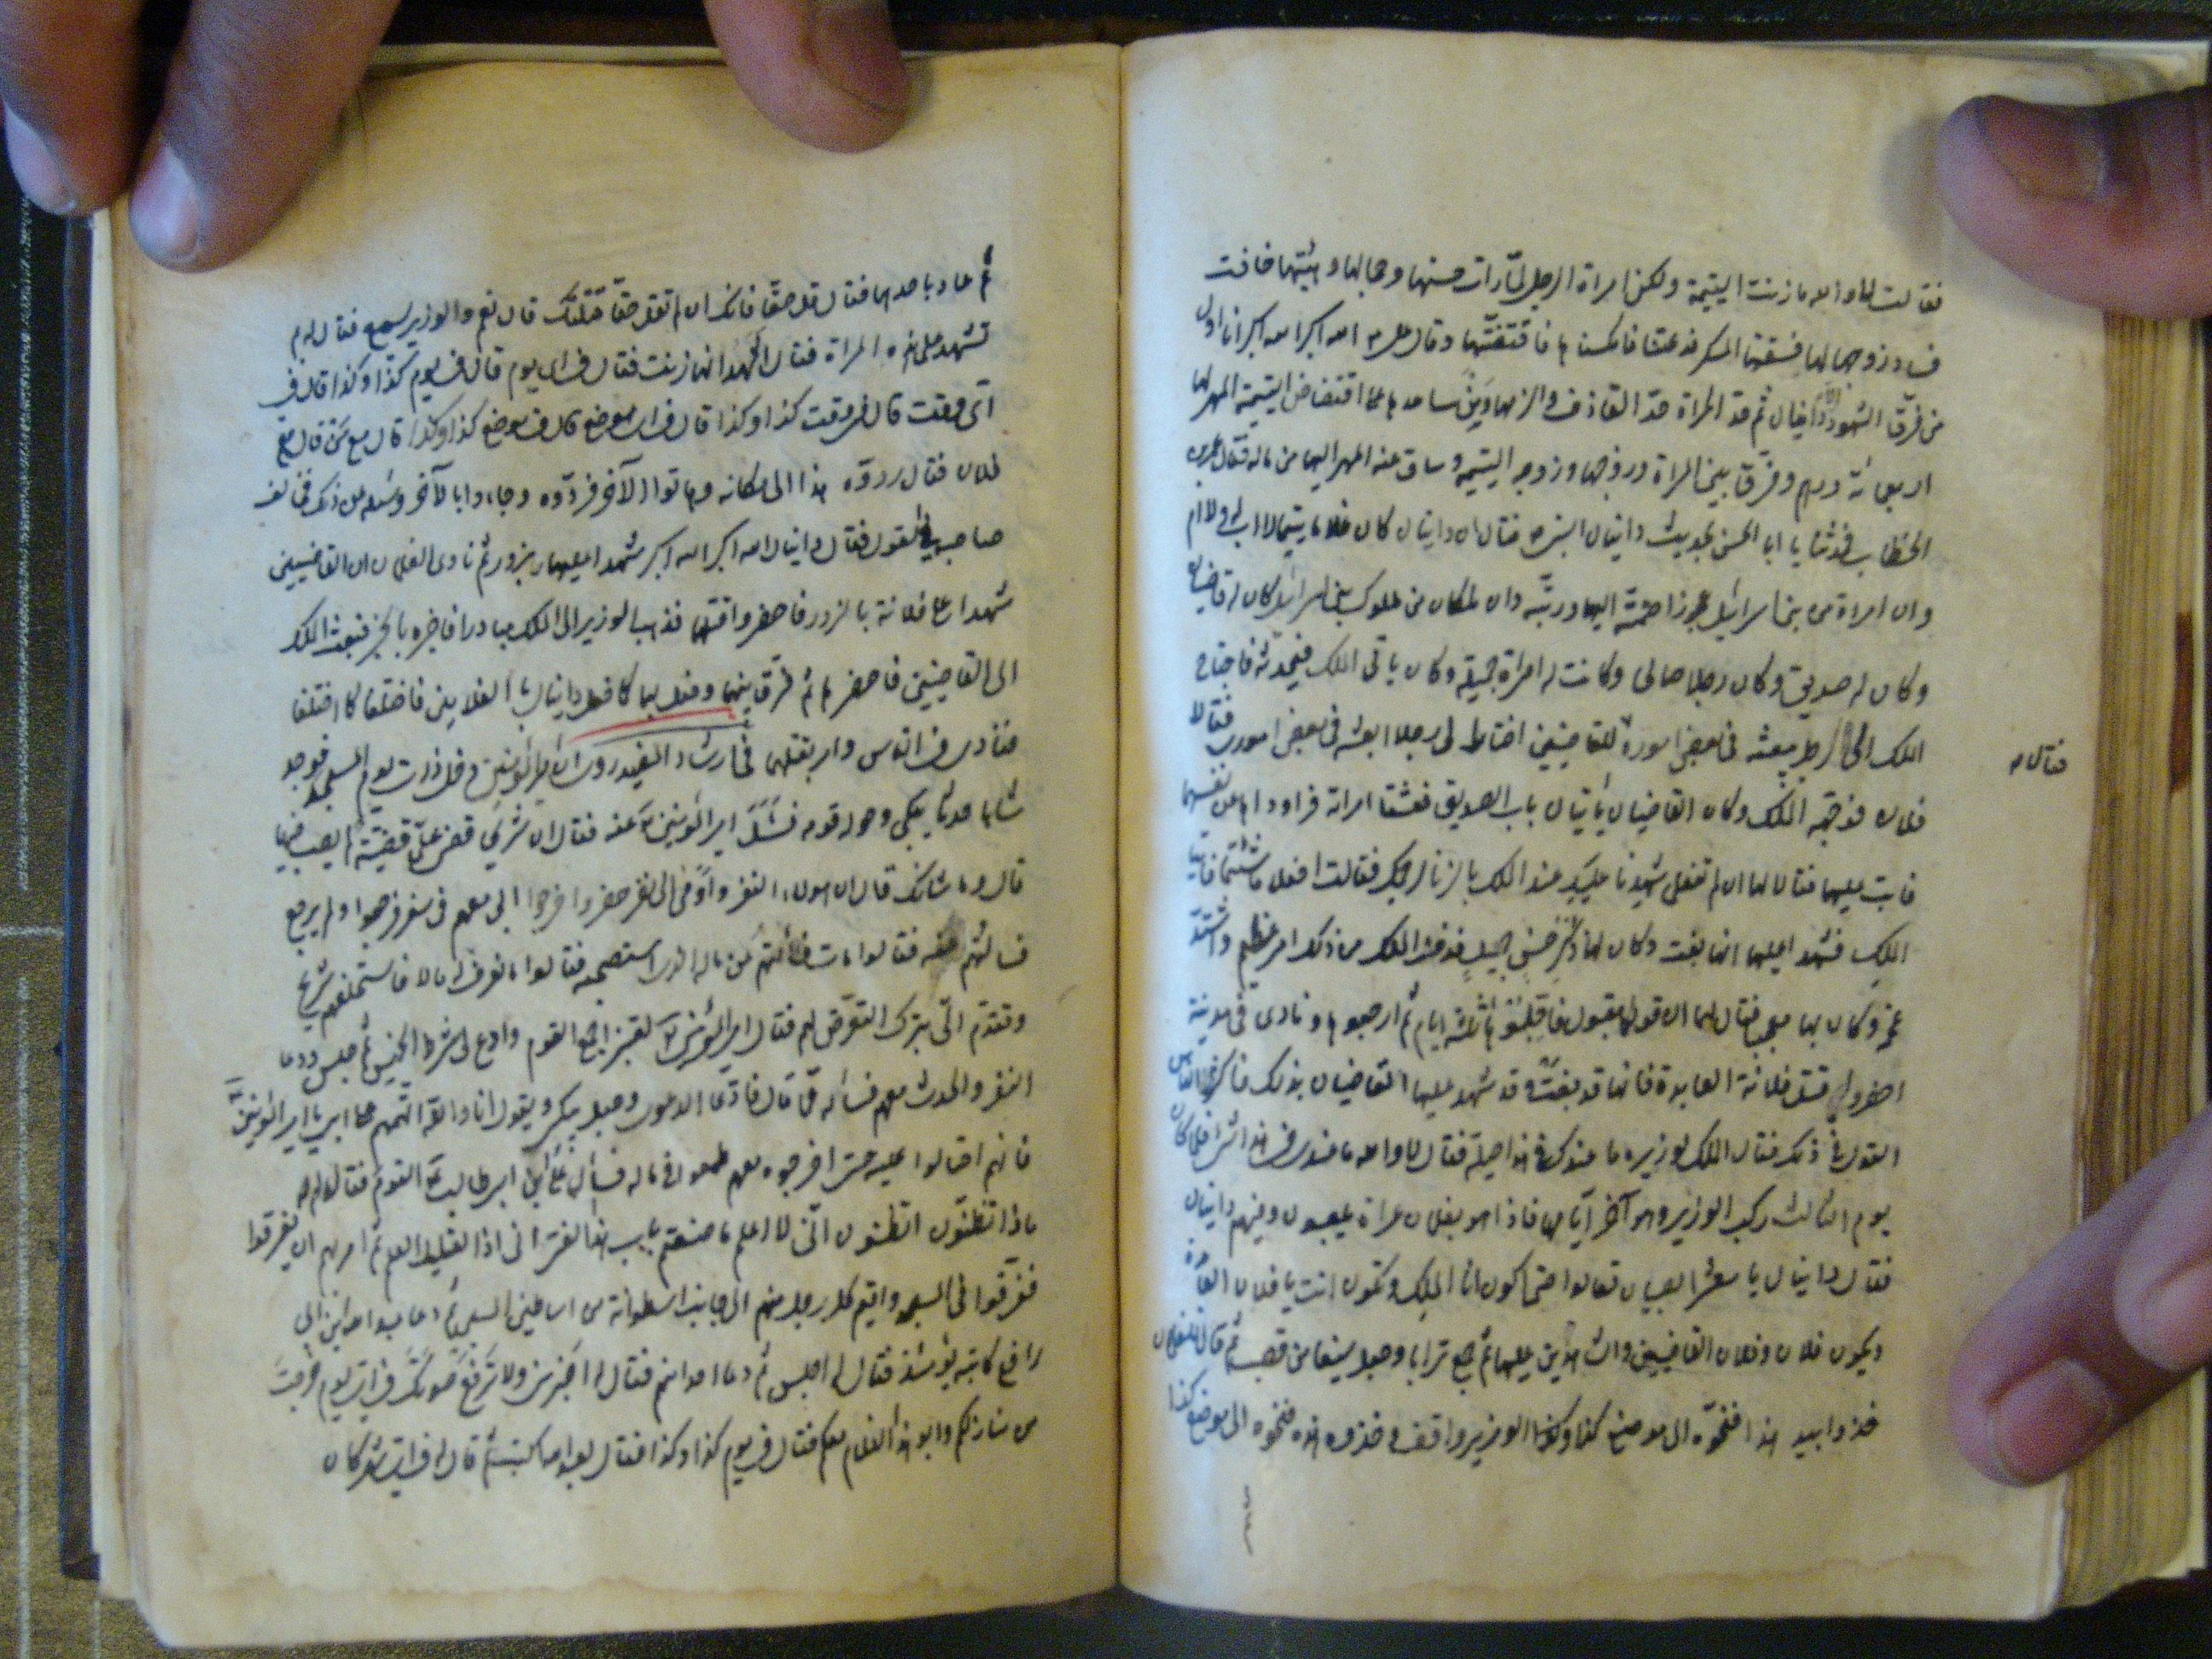 فقالت لا والله ما زنت اليتيمة ولكن امرأة الرجل لما رات حسنها وجمالها وهيئتها خافت
فساد زوجها لها فسقتها المسكر فدعتنا فامسكناها فافتضتها وقال علي الله اكبر الله اكبر انا اول
من فرق الشهود الا دانيال ثم حد المراة حد القاذف والزمها ومن ساعدها على اقتضاض اليتيمة المهر لها
اربعمائة درهم وفرق بين المراة وزوجها وزوجه اليتيمه وساق عنه المهر اليها من ماله فقال عمر بن
الخطاب فحدثنا يا ابا الحسن بحديث دانيال النبي فقال ان دانيال كان غلاما يتيما لا اب له ولا ام
وان امراة من بني اسرائيل عجوزا ضمته اليها وربته وان ملكا كان من ملوك بني اسرائيل كان له قاضيان
وكان له صديق وكان رجلا صالحا وكانت له امراة جميلة وكان ياتي الملك فيحدثه فاحتاج
الملك الى رجل يبعثه في بعض اموره فقال للقاضيين اختارا لي رجلا ابعثه في بعض اموري فقالا
فلان فوجهه الملك وكان القاضيان ياتيان باب الصديق فعشقا امراته فراوداها عن نفسها
فابت عليهما فقالا لها ان لم تفعلي شهدنا عليك عند الملك بالزنا ليرجمك فقالت افعلا ما شئتما فاتيا
الملك فشهدا عليها انها بغت وكان لها ذكر حسن جميل فدخل الملك من ذلك امر عظيم واشتد
غمه وكان بها معجبا فقال لهما ان قولكما مقبول فاجلوها ثلثة ايام ثم ارجموها ونادى في مدينته
احضروا قتل فلانة العابدة فانها قد بغت وقد شهد عليها القاضيان بذلك فاكثر الناس
القول في ذلك فقال الملك لوزيره ما عندك في هذا حيلة فقال لا والله ما عندي في هذا شيء فلما كان
يوم الثالث ركب الوزير وهو آخر ايامها فاذا هو بغلمان عراة يلعبون وفيهم دانيال
فقال دانيال يا معشر الصبيان تعالوا حتى اكون انا الملك وتكون انت يا فلان العابدة
ويكون فلان وفلان القاضيين والشاهدين عليها ثم جمع ترابا وجعل سيفا من قصب ثم قال للغلمان
خذوا بيد هذا فنحوه الى موضع كذا وكذا والوزير واقف وخذوا هذا فنحوه الى موضع كذا
فقال
ثم دعا باحدهما فقال قل حقا فانك ان لم تقل حقا قتلتك قال نعم والوزير يسمع فقال له بم
تشهد على هذه المراة فقال اشهد انها زنت فقال في اي يوم قال في يوم كذا وكذا قال في
اي وقت قال في وقت كذا وكذا قال في اي موضع قال في موضع كذا وكذا قال مع من قال مع
فلان فقال ردوه هذا الى مكانه وهاتوا الآخر فردوه وجاءوا بالآخر وسئله عن ذلك فخالف
صاحبه في القول فقال دانيال الله اكبر الله اكبر شهدا عليها بزور ثم نادى في الغلمان ان القاضيين
شهدا على فلانة بالزور فاحضروا قتلهما فذهب الوزير الى الملك مبادرا فاخبره بالخبر فبعث الملك
الى القاضيين فاحضرهما ثم فرق بينهما وفعل بهما كما فعل دانيال بالغلامين فاختلفا كما اختلفا
فنادى في الناس وامر بقتلهما في ارشاد المفيد روي ان امير المؤمنين دخل ذات يوم المسجد فوجد
شابا حدثا يبكي وحوله قوم فسئل امير المؤمنين عنه فقال ان شريحا قضى علي قضية لم ينصفني فيها
قال وما شانك قال ان هؤلاء النفر واومى الى نفر حضور اخرجوا ابي معهم في سفر فرجعوا ولم يرجع
فسالتهم عنه فقالوا مات فسألتهم عن ماله الذي استصحبه فقالوا ما نعرف له مالا فاستحلفهم شريح
وتقدم الي بترك التعرض لهم فقال امير المؤمنين لقنبر اجمع القوم وادع لي شرط الخميس ثم جلس ودعا
النفر والحدث معهم فسأله عما قال فاعاد الدعوى وجعل يبكي ويقول انا والله اتهمهم على ابي يا امير المؤمنين
فانهم احتالوا عليه حتى اخرجوه معهم طمعوا في ماله فسأل علي بن ابي طالب القوم فقال لهم
ماذا تظنون اتظنون انني لا اعلم ما صنعتم باب هذا الفتى اني اذا لقليل العلم ثم امر بهم ان يفرقوا
ففرقوا في المسجد واقيم كل رجل منهم الى جانب اسطوانة من اساطين المسجد ثم دعا عبيد الله بن ابي
رافع كاتبه يومئذ فقال له اجلس ثم دعا واحدا منهم فقال له اخبرني ولا ترفع صوتك في اي يوم خرجت
من منازلكم وابو هذا الغلام معكم فقال في يوم كذا وكذا فقال لعبيد الله اكتب ثم قال له في اي شهر كان